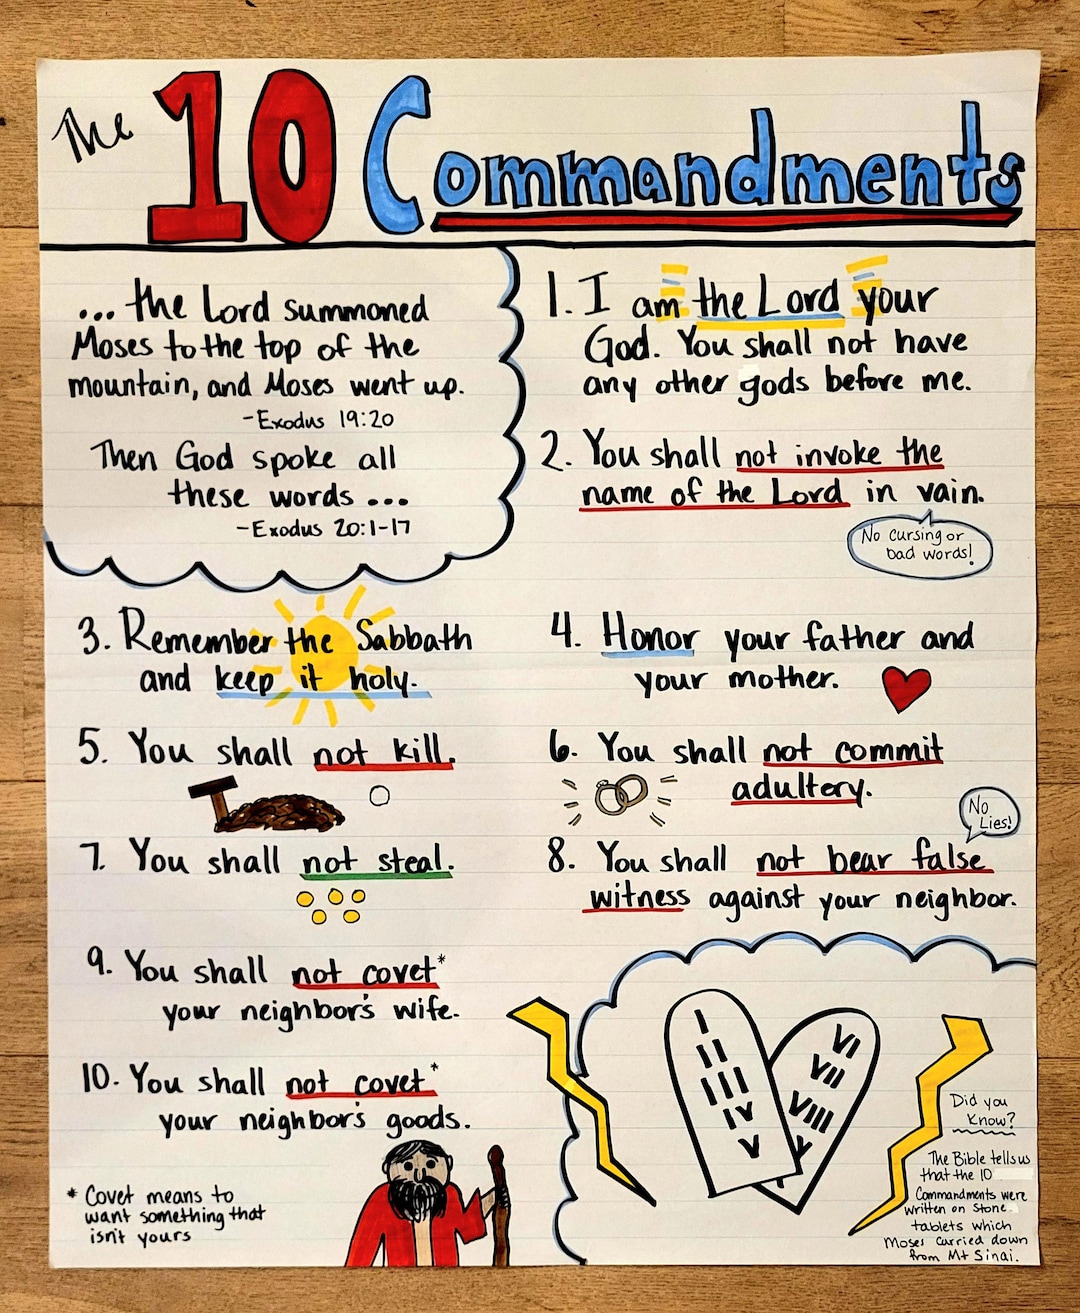 The 10 Commandments
... the Lord summoned
Moses to the top of the
mountain, and Moses went up.
-Exodus 19:20
Then God spoke all
these words ...
-Exodus 20:1-17
1. I am the Lord your
God. You shall not have
any other gods before me.
2. You shall not invoke the
name of the Lord in vain.
No cursing or
bad words!
3. Remember the Sabbath
and keep it holy.
4. Honor your father and
your mother.
5. You shall not kill.
6. You shall not commit
adultery.
7. You shall not steal.
No
Lies!
8. You shall not bear false
witness against your neighbor.
9. You shall not covet*
your neighbor's wife.
10. You shall not covet*
your neighbor's goods.
* Covet means to
want something that
isn't yours
I
II
III
IV
V
VI
VII
VIII
Did you
Know?
The Bible tells us
that the 10
Commandments were
written on stone
tablets which
Moses carried down
from Mt Sinai.